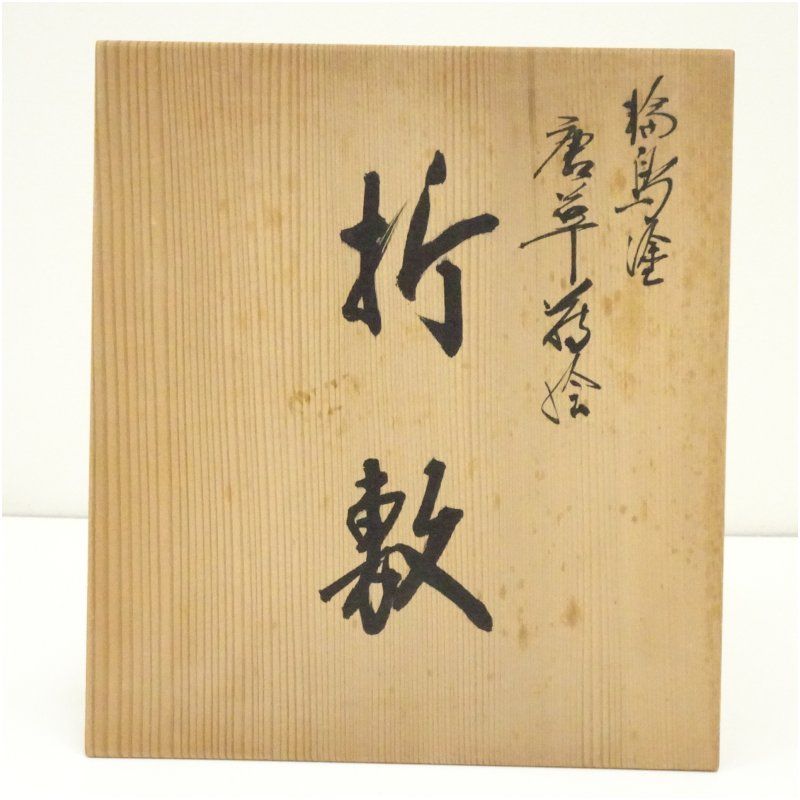 輪島塗
唐草蒔絵
折敷